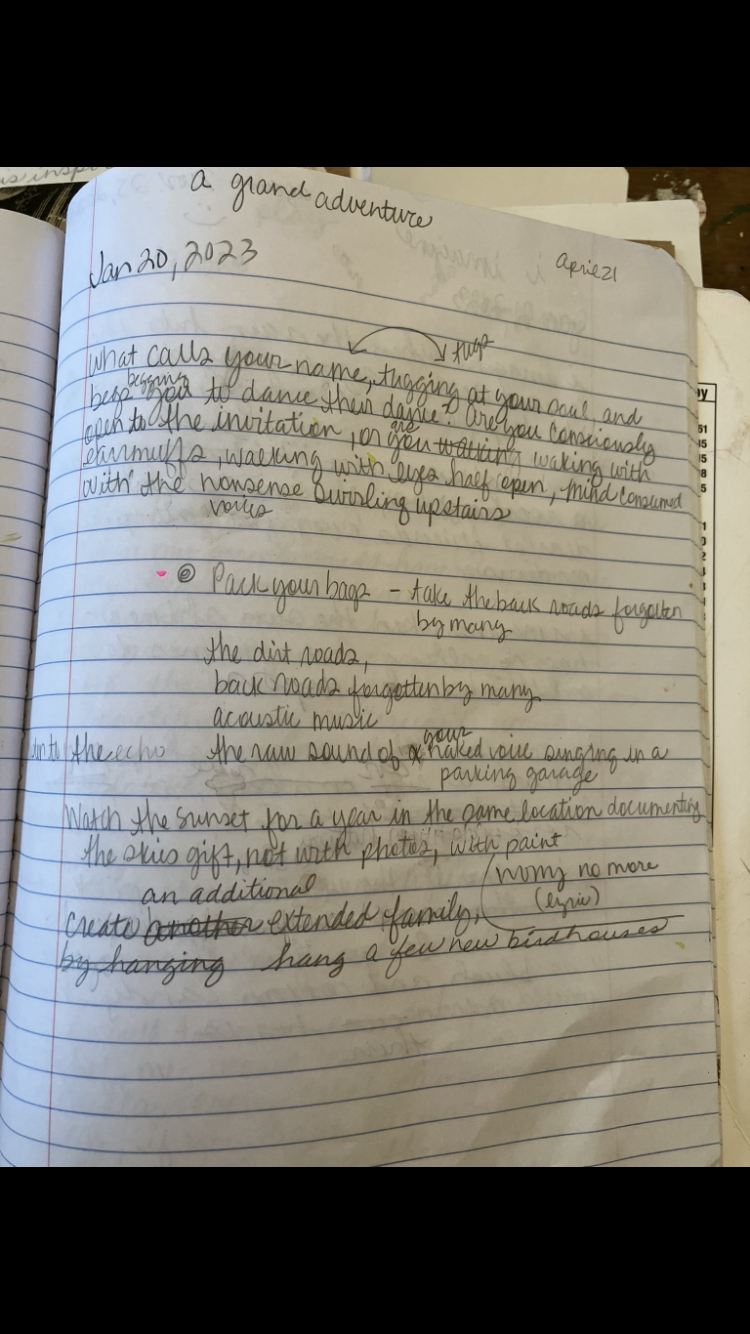 a grand adventure
Jan 20, 2023
April 21
tugs
what calls your name, tugging at your soul and
begging
begs you to dance their dance? are you consciously
open to the invitation, or you walking waking with
are
earmuffs, walking with eyes half open, mind consumed
with the nonsense swirling upstairs
voices
Pack your bags - take the back roads forgotten
by many
the dirt roads,
back roads forgotten by many
acoustic music
your
into the echo the raw sound of a naked voice singing in a
parking garage
Watch the sunset for a year in the same location documenting
the skies gift, not with photos, with paint
an additional
create another extended family,
(lyric)
no more
by hanging hang a few new birdhouses
61